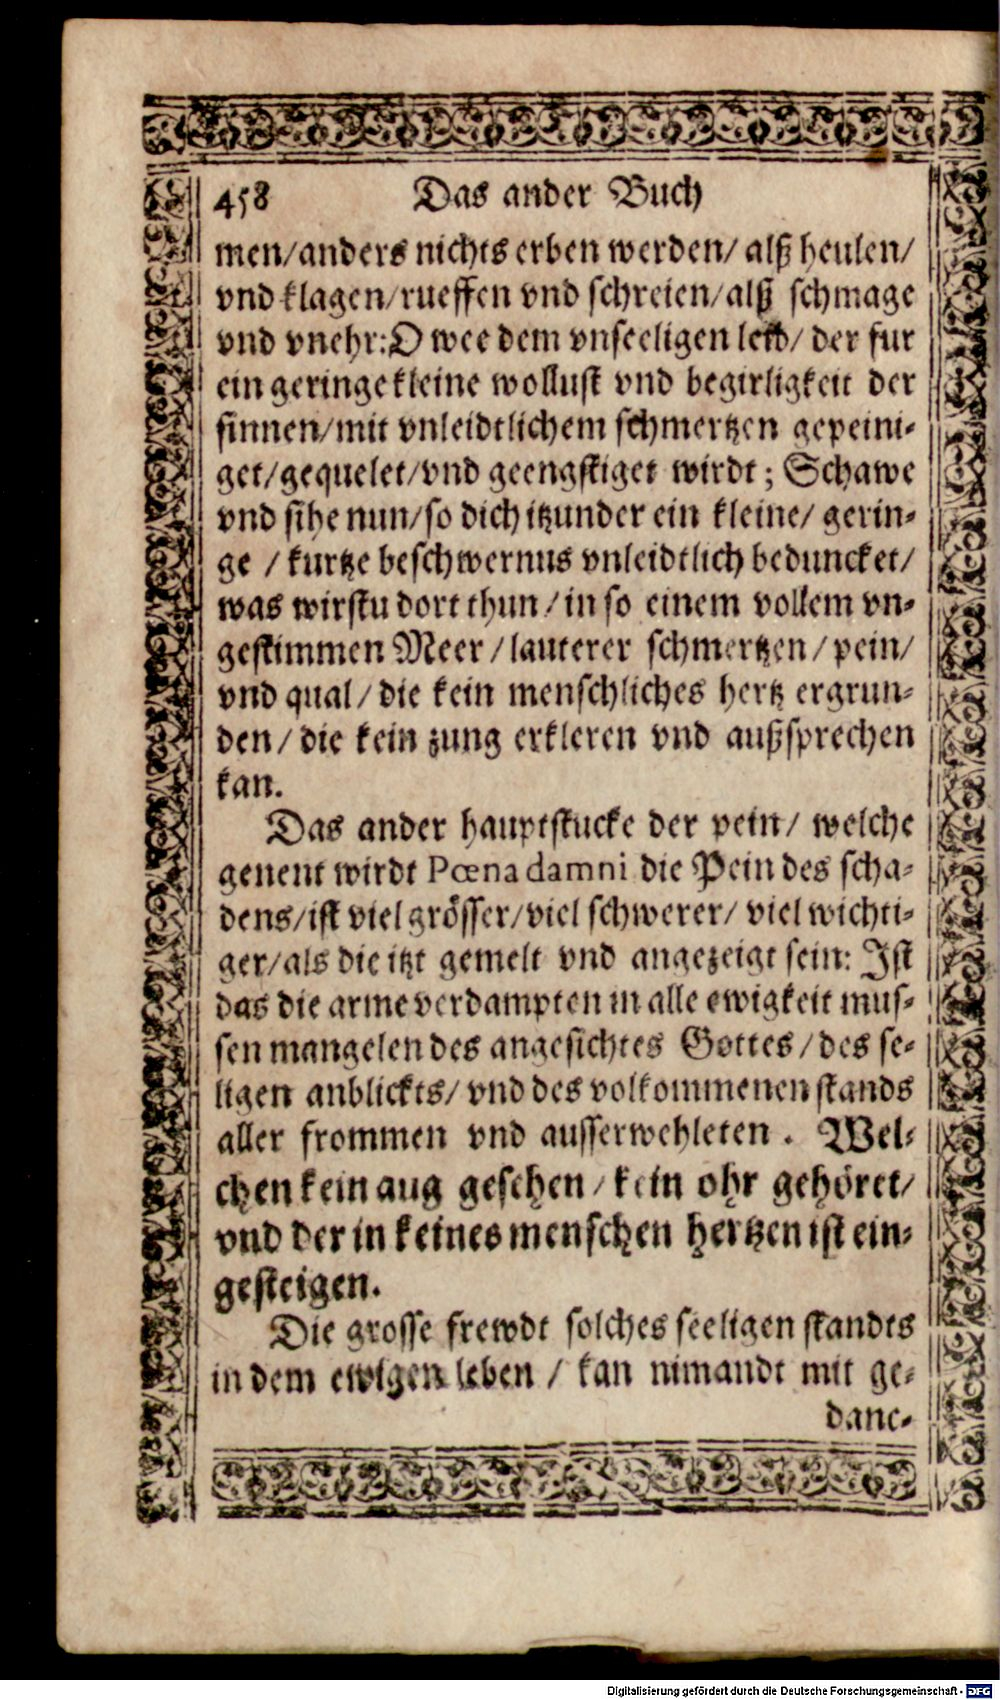 458 Das ander Buch
men/anders nichts erben werden/ alß heulen/
vnd klagen/rueffen vnd schreien/alß schmage
vnd vnehr:O wee dem vnseeligen leib/ der fur
ein geringe kleine wollust vnd begirligkeit der
sinnen/mit vnleidtlichem schmertzen gepeini-
get/gequelet/vnd geengstiget wirdt; Schawe
vnd sihe nun/so dich itzunder ein kleine/ gerin-
ge / kurtze beschwernus vnleidtlich beduncket/
was wirstu dort thun/in so einem vollem vn-
gestimmen Meer/lauterer schmertzen/pein/
vnd qual/die kein menschliches hertz ergrun-
den/die kein zung erkleren vnd außsprechen
kan.
Das ander hauptstucke der pein/ welche
genent wirdt Pœna damni die Pein des scha-
dens/ist viel grösser/viel schwerer/ viel wichti-
ger/als die itzt gemelt vnd angezeigt sein: Ist
das die arme verdampten in alle ewigkeit mus-
sen mangelen des angesichtes Gottes/des se-
ligen anblickts/vnd des volkommenen stands
aller frommen vnd ausserwehleten. Wel-
chen kein aug gesehen/kein ohr gehöret/
vnd der in keines menschen hertzen ist ein-
gesteigen.
Die grosse frewdt solches seeligen standts
in dem ewigen leben / kan nimandt mit ge-
danc-
Digitalisierung gefördert durch die Deutsche Forschungsgemeinschaft - DFG